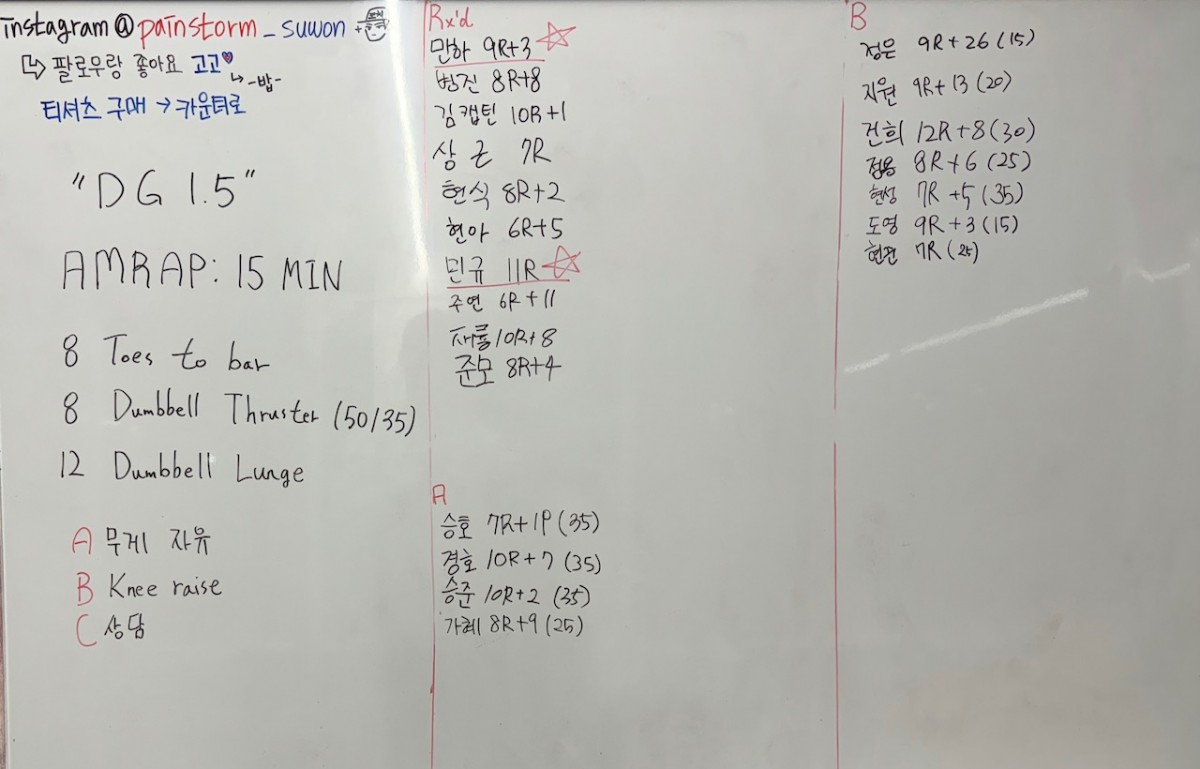 instagram@painstorm_suwon
↳ 팔로우랑 좋아요 고고♥
↳ -밥-
티셔츠 구매 → 카운터로
"DG 1.5"
AMRAP: 15 MIN
8 Toes to bar
8 Dumbbell Thruster (50/35)
12 Dumbbell Lunge
A 무게 자유
B Knee raise
C 상담
Rx'd
만하 9R+3 ☆
병진 8R+8
김캡틴 10R+1
상근 7R
현식 8R+2
현아 6R+5
민규 11R ☆
주연 6R+11
재룡 10R+8
준모 8R+4
A
승호 7R+19 (35)
경호 10R+7 (35)
승준 10R+2 (35)
8R+9 (25)
B
정은 9R+26 (15)
지원 9R+13 (20)
건희 12R+8 (30)
정용 8R+6 (25)
현성 7R+5 (35)
도영 9R+3 (15)
7R (25)